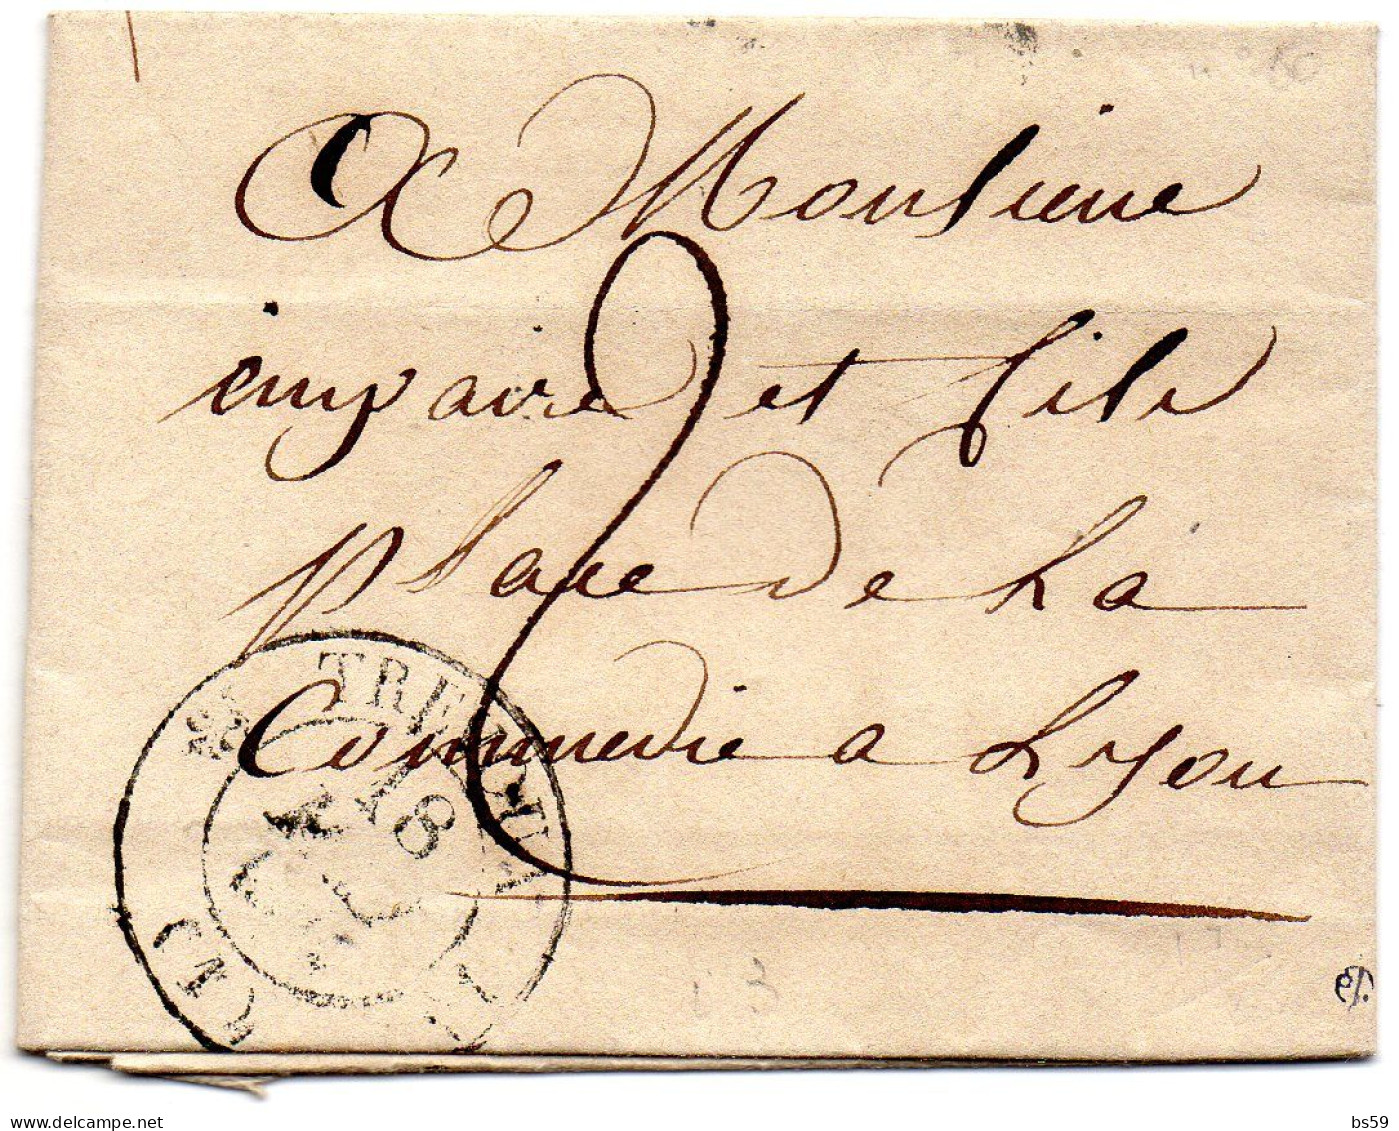 A Monsieur
impaire et fils
place de la
Commedie a Lyon
2
18
delcampe.net
bs59